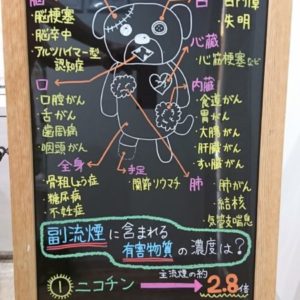 脳
・脳梗塞
・脳卒中
・アルツハイマー型
認知症
口
・口腔がん
・舌がん
・歯周病
・咽頭がん
全身
・骨粗しょう症
・糖尿病
・不妊症
手足
・関節リウマチ
・失明
心臓
・心筋梗塞など
内臓
・食道がん
・胃がん
・大腸がん
・肝臓がん
・すい臓がん
肺
・肺がん
・結核
・気管支喘息
副流煙に含まれる
有害物質の濃度は?
① ニコチン
主流煙の約
2.8倍